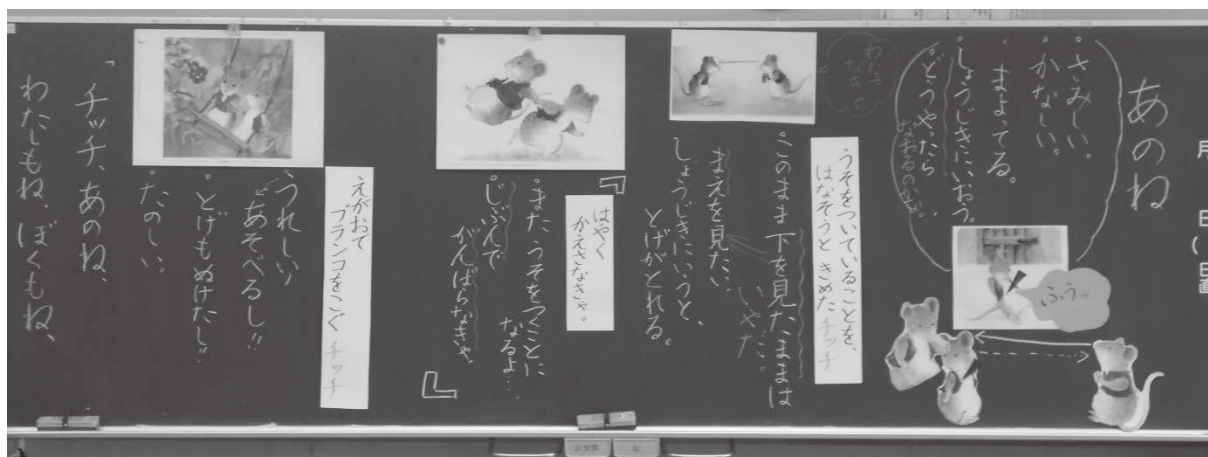 月　日（　）
あのね
・さみしい。
・かなしい。
・まよってる。
・しょうじきにいおう。
・どうやったら
なおるのかな。
ふうっ
うそをついていることを、
はなそうと きめた チッチ
このまま下を見たままは
いやだ。
まえを見たい
しょうじきにいうと、
とげがとれる。
『
はやく
かえさなきゃ。
・また うそをつくことに
なるよ…
・じぶんで
がんばらなきゃ
』
えがおで
ブランコをこぐ チッチ
・うれしい
あそべるし!!
・とげもぬけたし!!
・たのしい。
「チッチ、あのね、
わたしもね、ぼくもね、